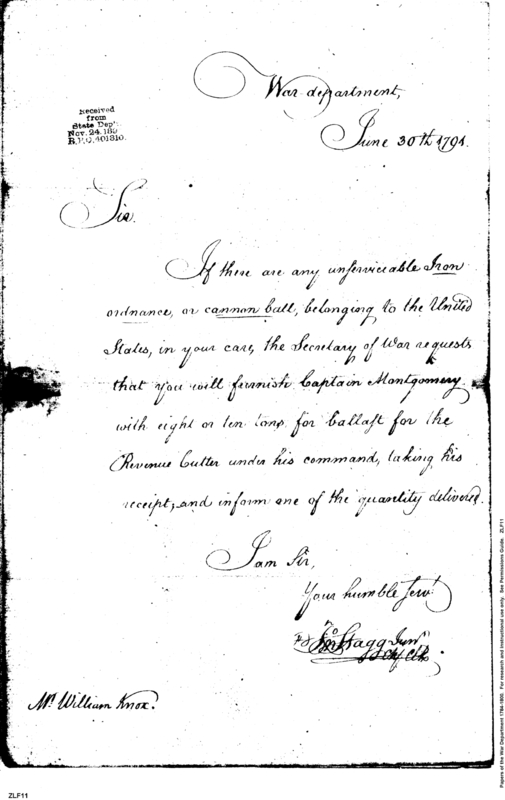 War department,
June 30th 1791.
Received
from
State Dep't.
Nov. 24. 189
R.P.O. 401310.
Sir.
If there are any unserviceable Iron
ordnance, or cannon ball, belonging to the United
States, in your care, the Secretary of War requests
that you will furnish Captain Montgomery
with eight or ten tons for ballast for the
Revenue Cutter under his command, taking his
receipt, and inform me of the quantity delivered.
I am Sir,
Your humble Servt
Jno Stagg Junr
Chf Clk.
Mr. William Knox.
ZLF11
Papers of the War Department 1784-1800. For research and instructional use only. See Permissions Guide. ZLF11